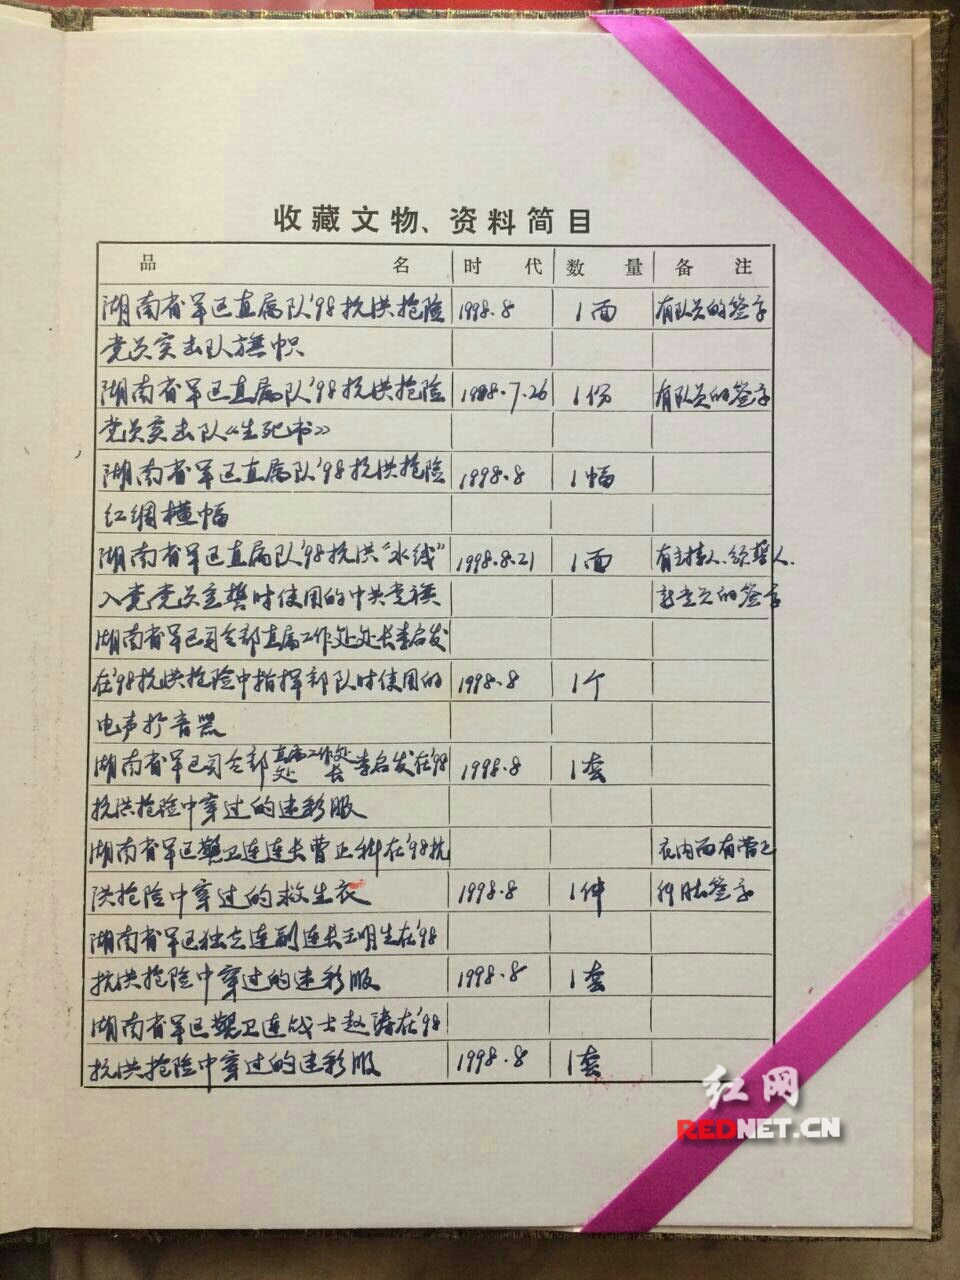 收藏文物、资料简目
品名 时代 数量 备注
湖南省军区直属队'98抗洪抢险 1998.8 1面 有队员的签字
党员突击队旗帜
湖南省军区直属队'98抗洪抢险 1998.7.26 1份 有队员的签字
党员突击队《生死书》
湖南省军区直属队'98抗洪抢险 1998.8 1幅
红绸横幅
湖南省军区直属队'98抗洪"水线" 1998.8.21 1面 有主持人、领誓人、
入党党员宣誓时使用的中共党旗 新党员的签字
湖南省军区司令部直属工作处处长李启发
在'98抗洪抢险中指挥部队时使用的 1998.8 1个
电声扩音器
湖南省军区司令部直属工作处处长李启发在'98 1998.8 1套
抗洪抢险中穿过的迷彩服
湖南省军区警卫连连长曹正科在'98抗 衣内面有曹正
洪抢险中穿过的救生衣 1998.8 1件 科签字
湖南省军区独立连副连长王明生在'98
抗洪抢险中穿过的迷彩服 1998.8 1套
湖南省军区警卫连战士赵涛在'98
抗洪抢险中穿过的迷彩服 1998.8 1套
红网
REDNET.CN